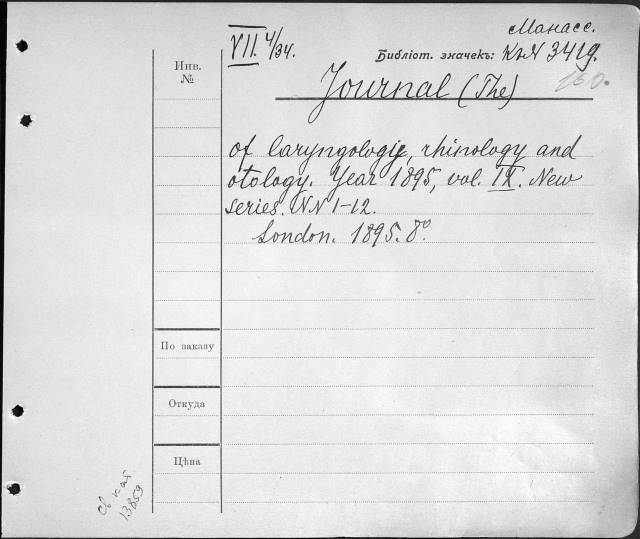 Манасс.
VII. 4/34.
Библіот. значекъ: К.N 3419.
160.
Инв.
№
Journal (The)
of laryngologie, rhinology and
otology. Year 1895, vol. IX. New
series. NN 1-12.
London. 1895. 8°
По заказу
Откуда
Цѣна
св кат
13859